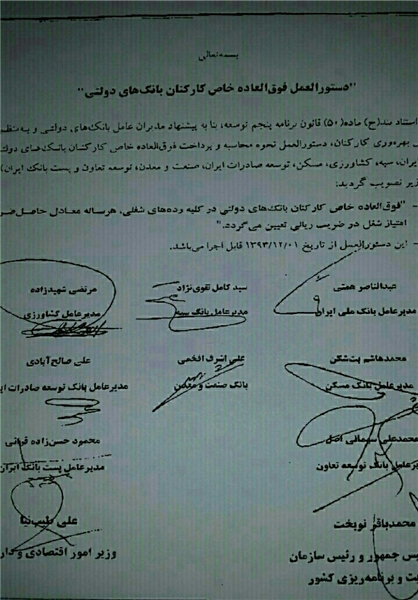 بسمه‌تعالی
"دستورالعمل فوق‌العاده خاص کارکنان بانک‌های دولتی"
استناد بند(ح) ماده(۵۰) قانون برنامه پنجم توسعه، بنا به پیشنهاد مدیران عامل بانک‌های دولتی و به‌منظـ
بهره‌وری کارکنان، دستورالعمل نحوه محاسبه و پرداخت فوق‌العاده خاص کارکنان بانک‌های دولتـ
ایران، سپه، کشاورزی، مسکن، توسعه صادرات ایران، صنعت و معدن، توسعه تعاون و پست بانک ایران)
تصویب گردید:
- "فوق‌العاده خاص کارکنان بانک‌های دولتی در کلیه رده‌های شغلی، هرساله معادل حاصل‌ضر
امتیاز شغل در ضریب ریالی تعیین می‌گردد."
- این دستورالعمل از تاریخ ۱۳۹۳/۱۲/۰۱ قابل اجرا می‌باشد.
عبدالناصر همتی سید کامل تقوی‌نژاد مرتضی شهیدزاده
مدیرعامل بانک ملی ایران مدیرعامل بانک سپه مدیرعامل کشاورزی
محمدهاشم بت‌شکن علی اشرف افخمی علی صالح‌آبادی
مدیرعامل بانک مسکن بانک صنعت و معدن مدیرعامل بانک توسعه صادرات ایـ
محمدعلی سهمانی اصل محمود حسن‌زاده
مدیرعامل بانک توسعه تعاون مدیرعامل پست بانک ایران
محمدباقر نوبخت علی طیب‌نیا
یس جمهور و رئیس سازمان وزیر امور اقتصادی و دار
ت و برنامه‌ریزی کشور